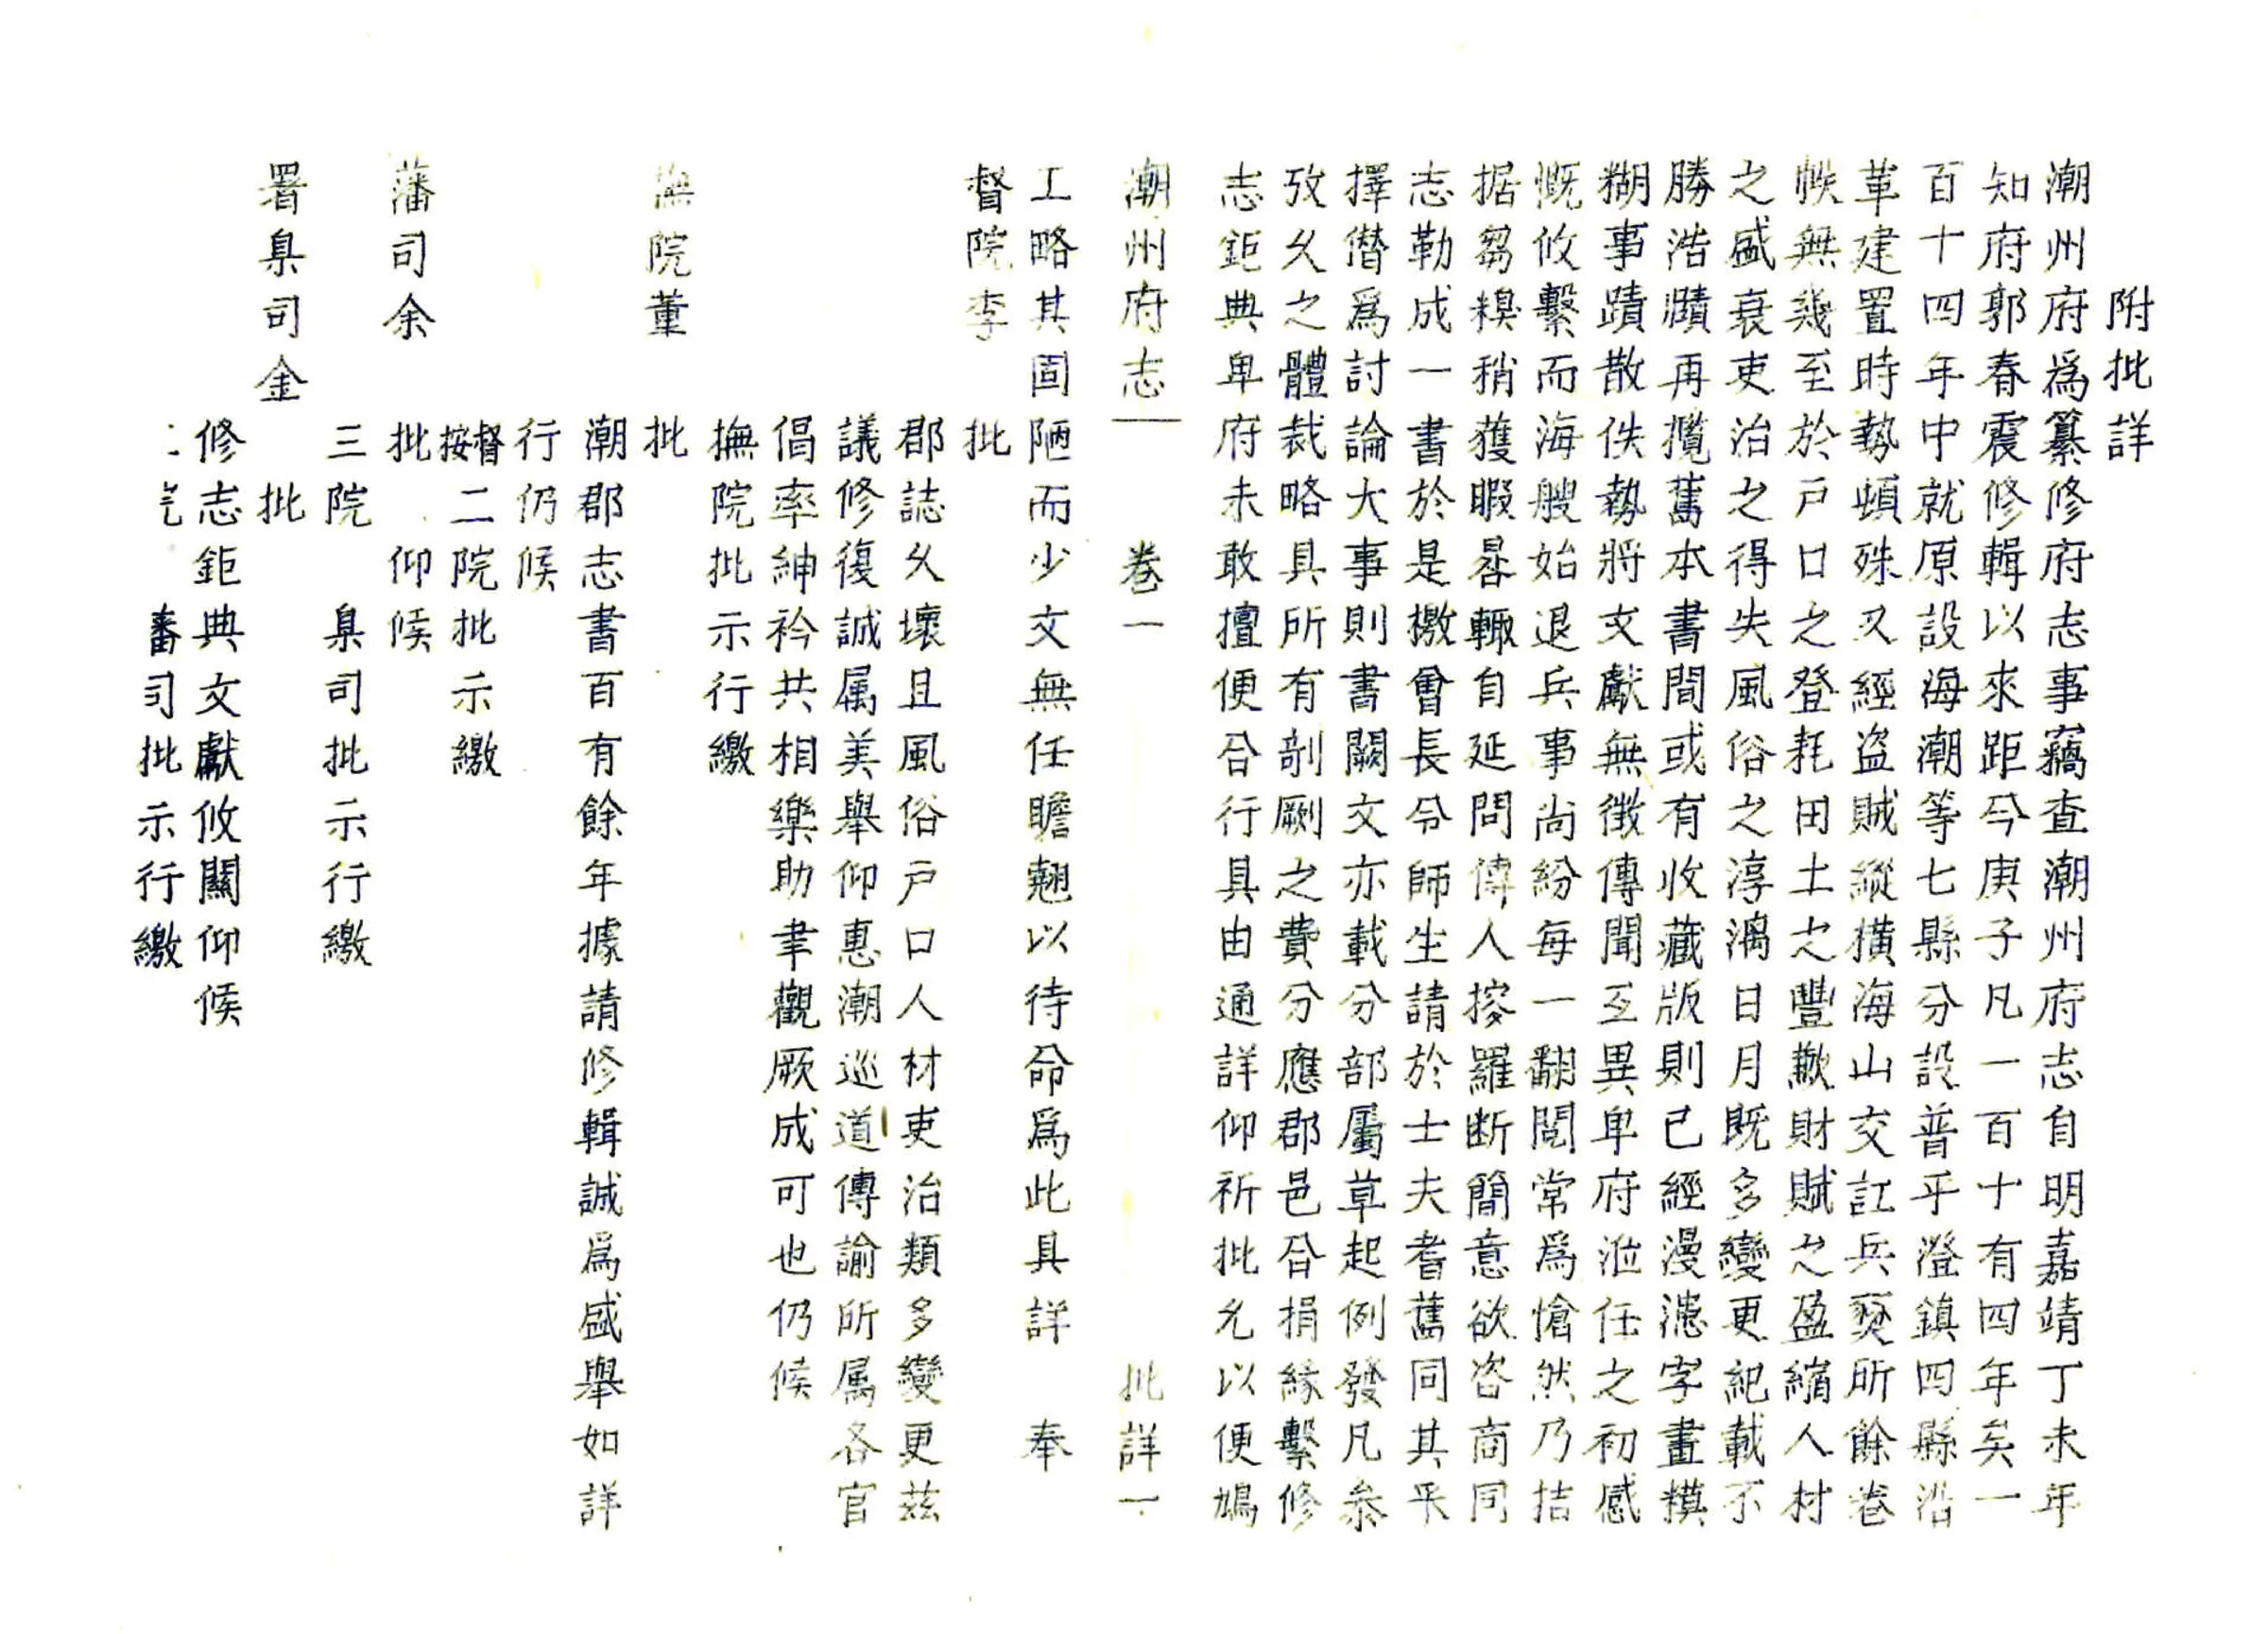 附批詳
潮州府爲纂修府志事竊查潮州府志自明嘉靖丁未年
知府郭春震修輯以來距今庚子凡一百十有四年矣一
百十四年中就原設海潮等七縣分設普平澄鎮四縣沿
革建置時勢頓殊又經盜賊縱橫海山交訌兵燹所餘卷
帙無幾至於戸口之登耗田土之豐歉財賦之盈縮人材
之盛衰吏治之得失風俗之淳漓日月既多變更紀載不
勝浩牘再攬舊本書間或有收藏版則已經漫漶字畫模
糊事蹟散佚勢將文獻無徴傳聞互異卑府涖任之初感
慨攸繫而海艘始退兵事尚紛每一翻閱常爲愴然乃拮
据芻糗稍獲暇晷輒自延問傳人搜羅断簡意欲咨商同
志勒成一書於是檄曾長令師生請於士夫耆舊同其采
擇僭爲討論大事則書闕文亦載分部屬草起例發凡叅
攷乆之體裁略具所有剞劂之費分應郡邑合捐緣繫修
志鉅典卑府未敢擅便合行具由通詳仰祈批允以便鳩
潮州府志 卷一 批詳一
工略其固陋而少文無任瞻翹以待命爲此具詳 奉
督院李
批
郡誌乆壞且風俗戸口人材吏治類多變更茲
議修復誠属美舉仰惠潮巡道傳諭所属各官
倡率紳衿共相樂助聿觀厥成可也仍候
撫院批示行繳
撫院董
批
潮郡志書百有餘年據請修輯誠爲盛舉如詳
行仍候
督按二院批示繳
藩司余
批 仰候
三院 臬司批示行繳
署臬司金
批
修志鉅典文獻攸關仰候
司批示行繳